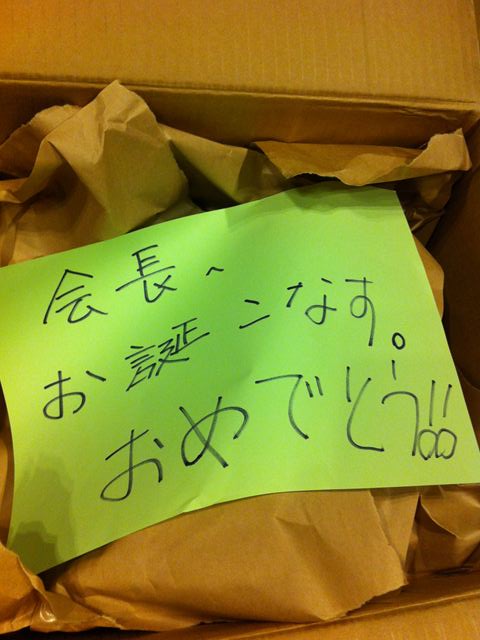 会長へ
お誕こなす。
おめでとう!!